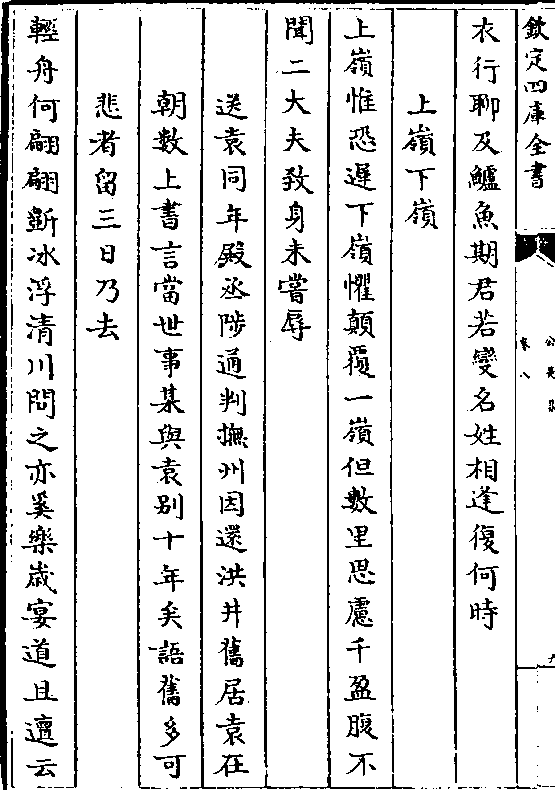 欽定四庫全書
衣行聊及鱸魚期君若變名姓相逢復何時
上嶺下嶺
上嶺惟恐遲下嶺懼顛覆一嶺但數里思慮千盈腹不
聞二大夫致身未嘗辱
送袁同年殿丞陟通判撫州因還洪井舊居袁在
朝數上書言當世事某與袁别十年矣語舊多可
悲者留三日乃去
輕舟何翩翩斷冰浮清川問之亦奚樂歲宴道且邅云